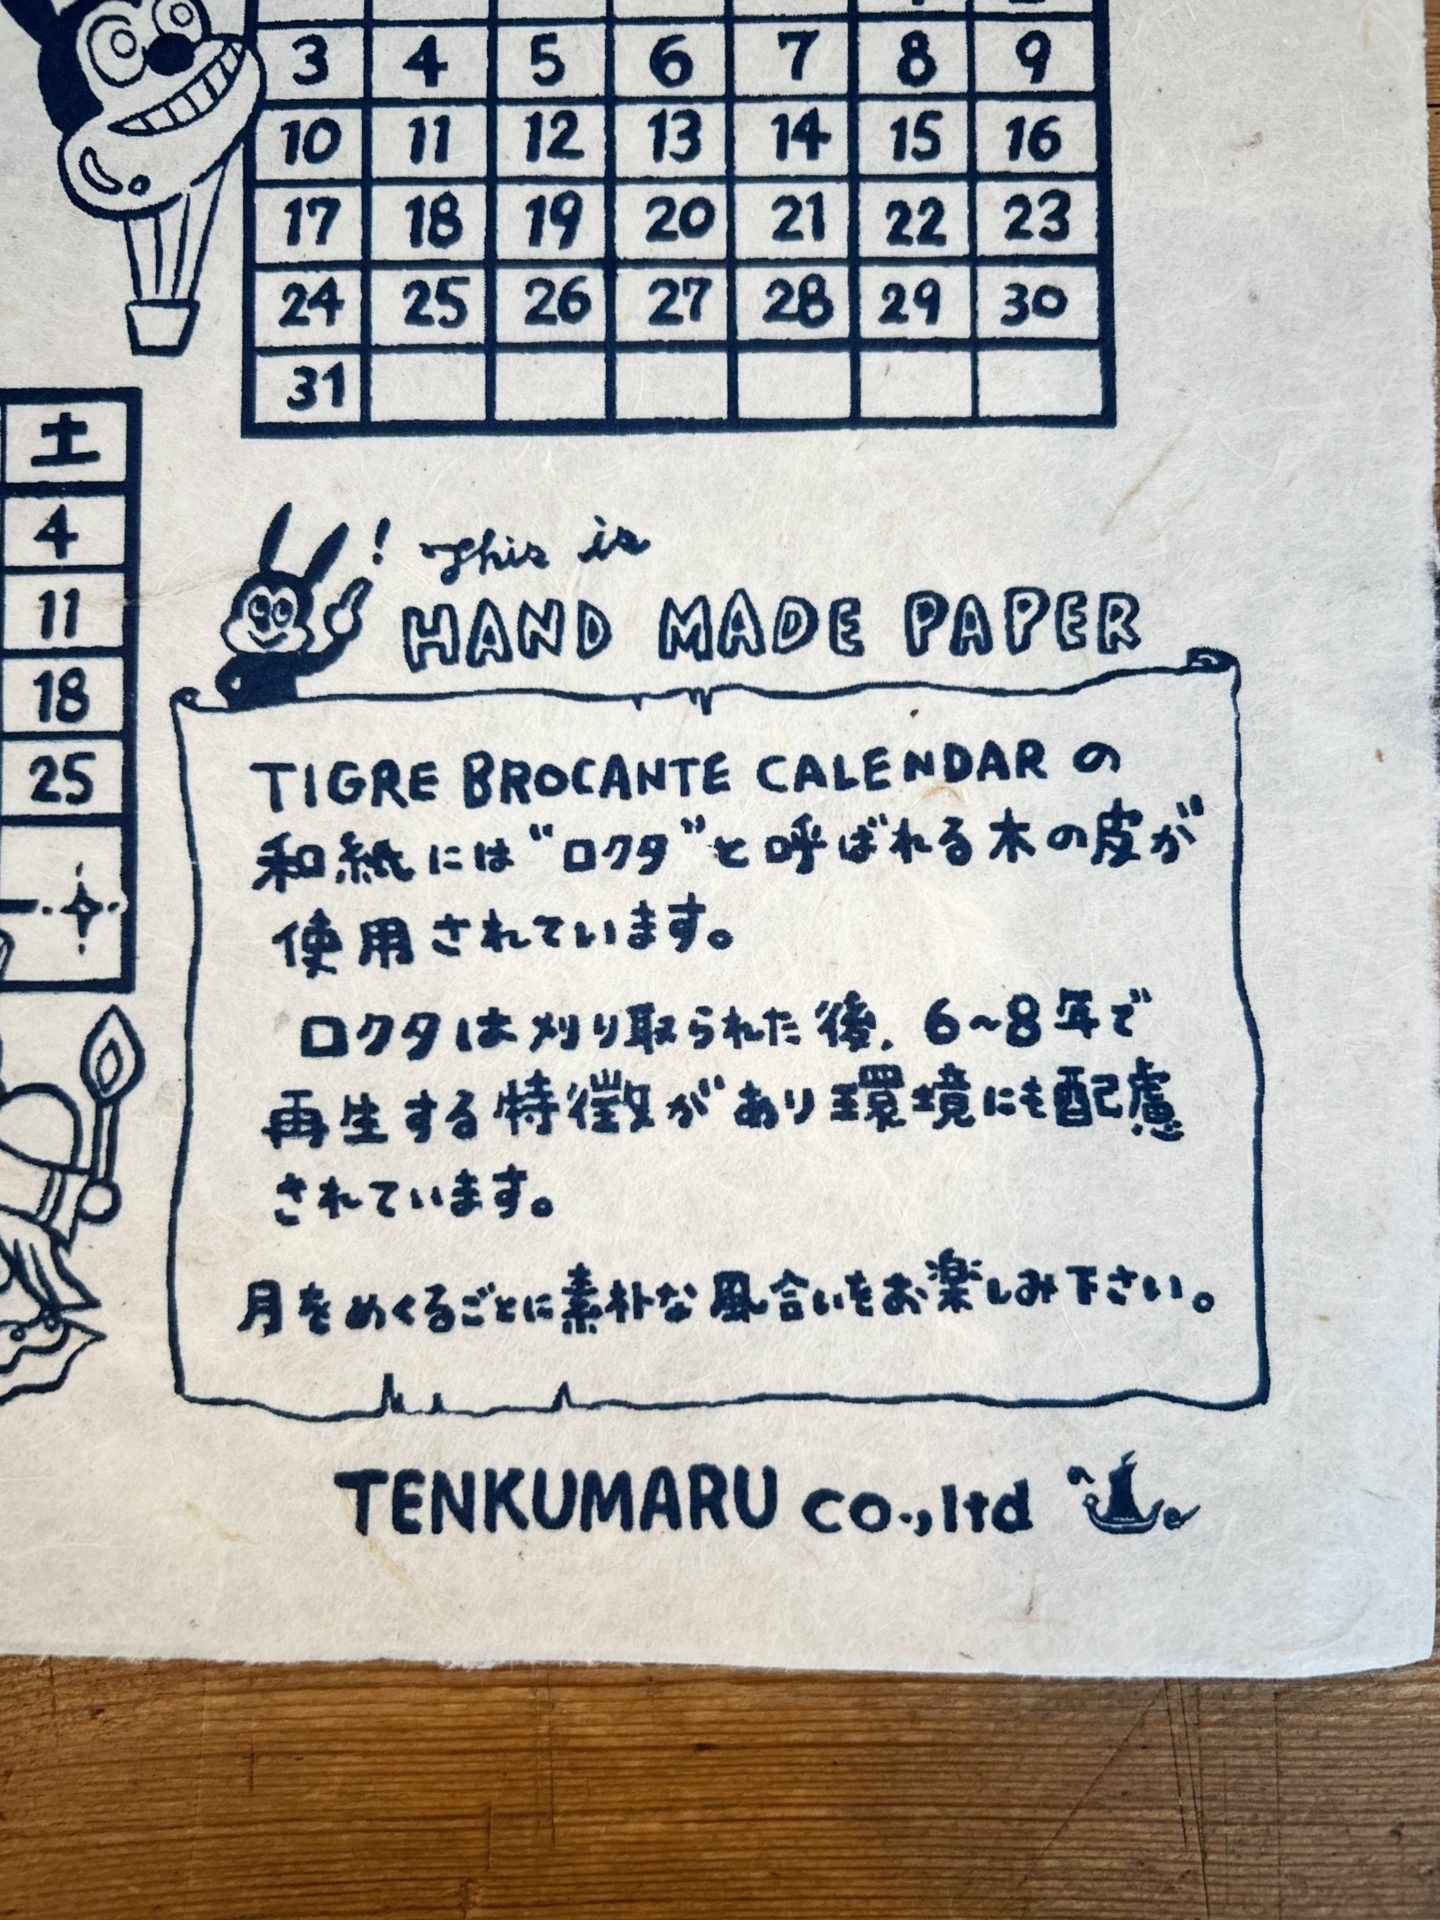 3 4 5 6 7 8 9
10 11 12 13 14 15 16
17 18 19 20 21 22 23
24 25 26 27 28 29 30
31
土
4
11
18
25
! This is
HAND MADE PAPER
TIGRE BROCANTE CALENDAR の
和紙には“ロクタ”と呼ばれる木の皮が
使用されています。
ロクタは刈り取られた後、6~8年で
再生する特徴があり環境にも配慮
されています。
月をめくるごとに素朴な風合いをお楽しみ下さい。
TENKUMARU co.,ltd